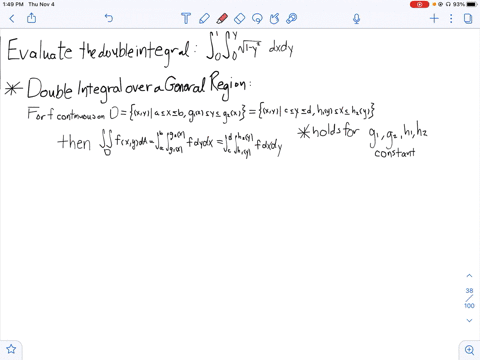 1:49 PM Thu Nov 4
93%
Evaluate the double integral: ∫₀¹ ∫₀ʸ √(1-y²) dxdy
* Double Integral over a General Region:
For f continuous on D = {(x,y) | a ≤ x ≤ b, g₁(x) ≤ y ≤ g₂(x)} = {(x,y) | c ≤ y ≤ d, h₁(y) ≤ x ≤ h₂(y)}
then ∬_D f(x,y)dA = ∫ₐᵇ ∫_{g₁(x)}^{g₂(x)} f dydx = ∫_c^d ∫_{h₁(y)}^{h₂(y)} f dxdy
* holds for g₁, g₂, h₁, h₂
constant
38
/
100